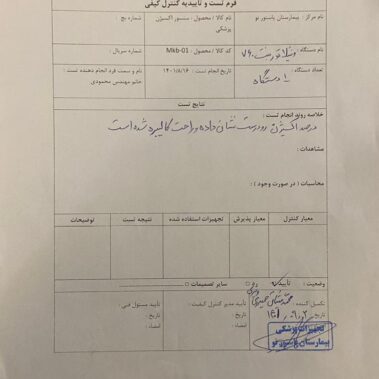 فرم تست و تاییدیه کنترل کیفی
نام مرکز : بیمارستان پاستور نو
نام کالا / محصول : سنسور اکسیژن پزشکی
شماره بچ :
نام دستگاه :
کد کالا / محصول : Mkb-01
شماره سریال :
تعداد دستگاه :
۱ دستگاه
تاریخ انجام تست : ۱۴۰۱/۸/۱۶
نام و سمت فرد انجام دهنده تست : خانم مهندس محمودی
نتایج تست
خلاصه روند انجام تست :
درصد اکسیژن رو درست نشان داده و راحت کالیبره شده است
مشاهدات :
محاسبات ( در صورت وجود ) :
معیار کنترل
معیار پذیرش
تجهیزات استفاده شده
نتیجه تست
توضیحات
وضعیت : تأیید
رد
سایر تصمیمات
تکمیل کننده :
تاریخ :
تأیید مدیر کنترل کیفیت :
تاریخ :
امضاء :
تأیید مسئول فنی :
تاریخ :
امضاء :
تجهیزات پزشکی
بیمارستان پاستور نو